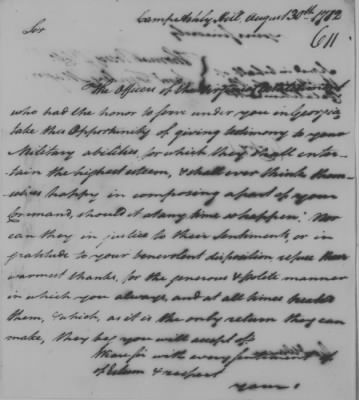 Camp Ashly Hill August 30th 1782
611
Sir
The Officers of the Virginia
who had the honor to serve under you in Georgia
take this Opportunity of giving testimony to your
Military abilities, for which they shall enter-
tain the highest esteem, & shall ever think them-
selves happy in composing a part of your
Command, should it at any time so happen; Nor
can they in justice to their Sentiments, or in
gratitude to your benevolent disposition, refuse their
warmest thanks, for the generous & polite manner
in which you always, and at all times treated
them, & which, as it is the only return they can
make, they beg you will accept of.
We are Sir with every sentiment
of Esteem & respect
yours